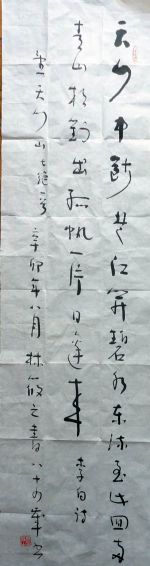 天门中断楚江开碧水东流至此回两
青山相對出孤帆一片日邊来 李白诗
望天门山七绝一首 辛卯年八月 林筱之书 八十四歲